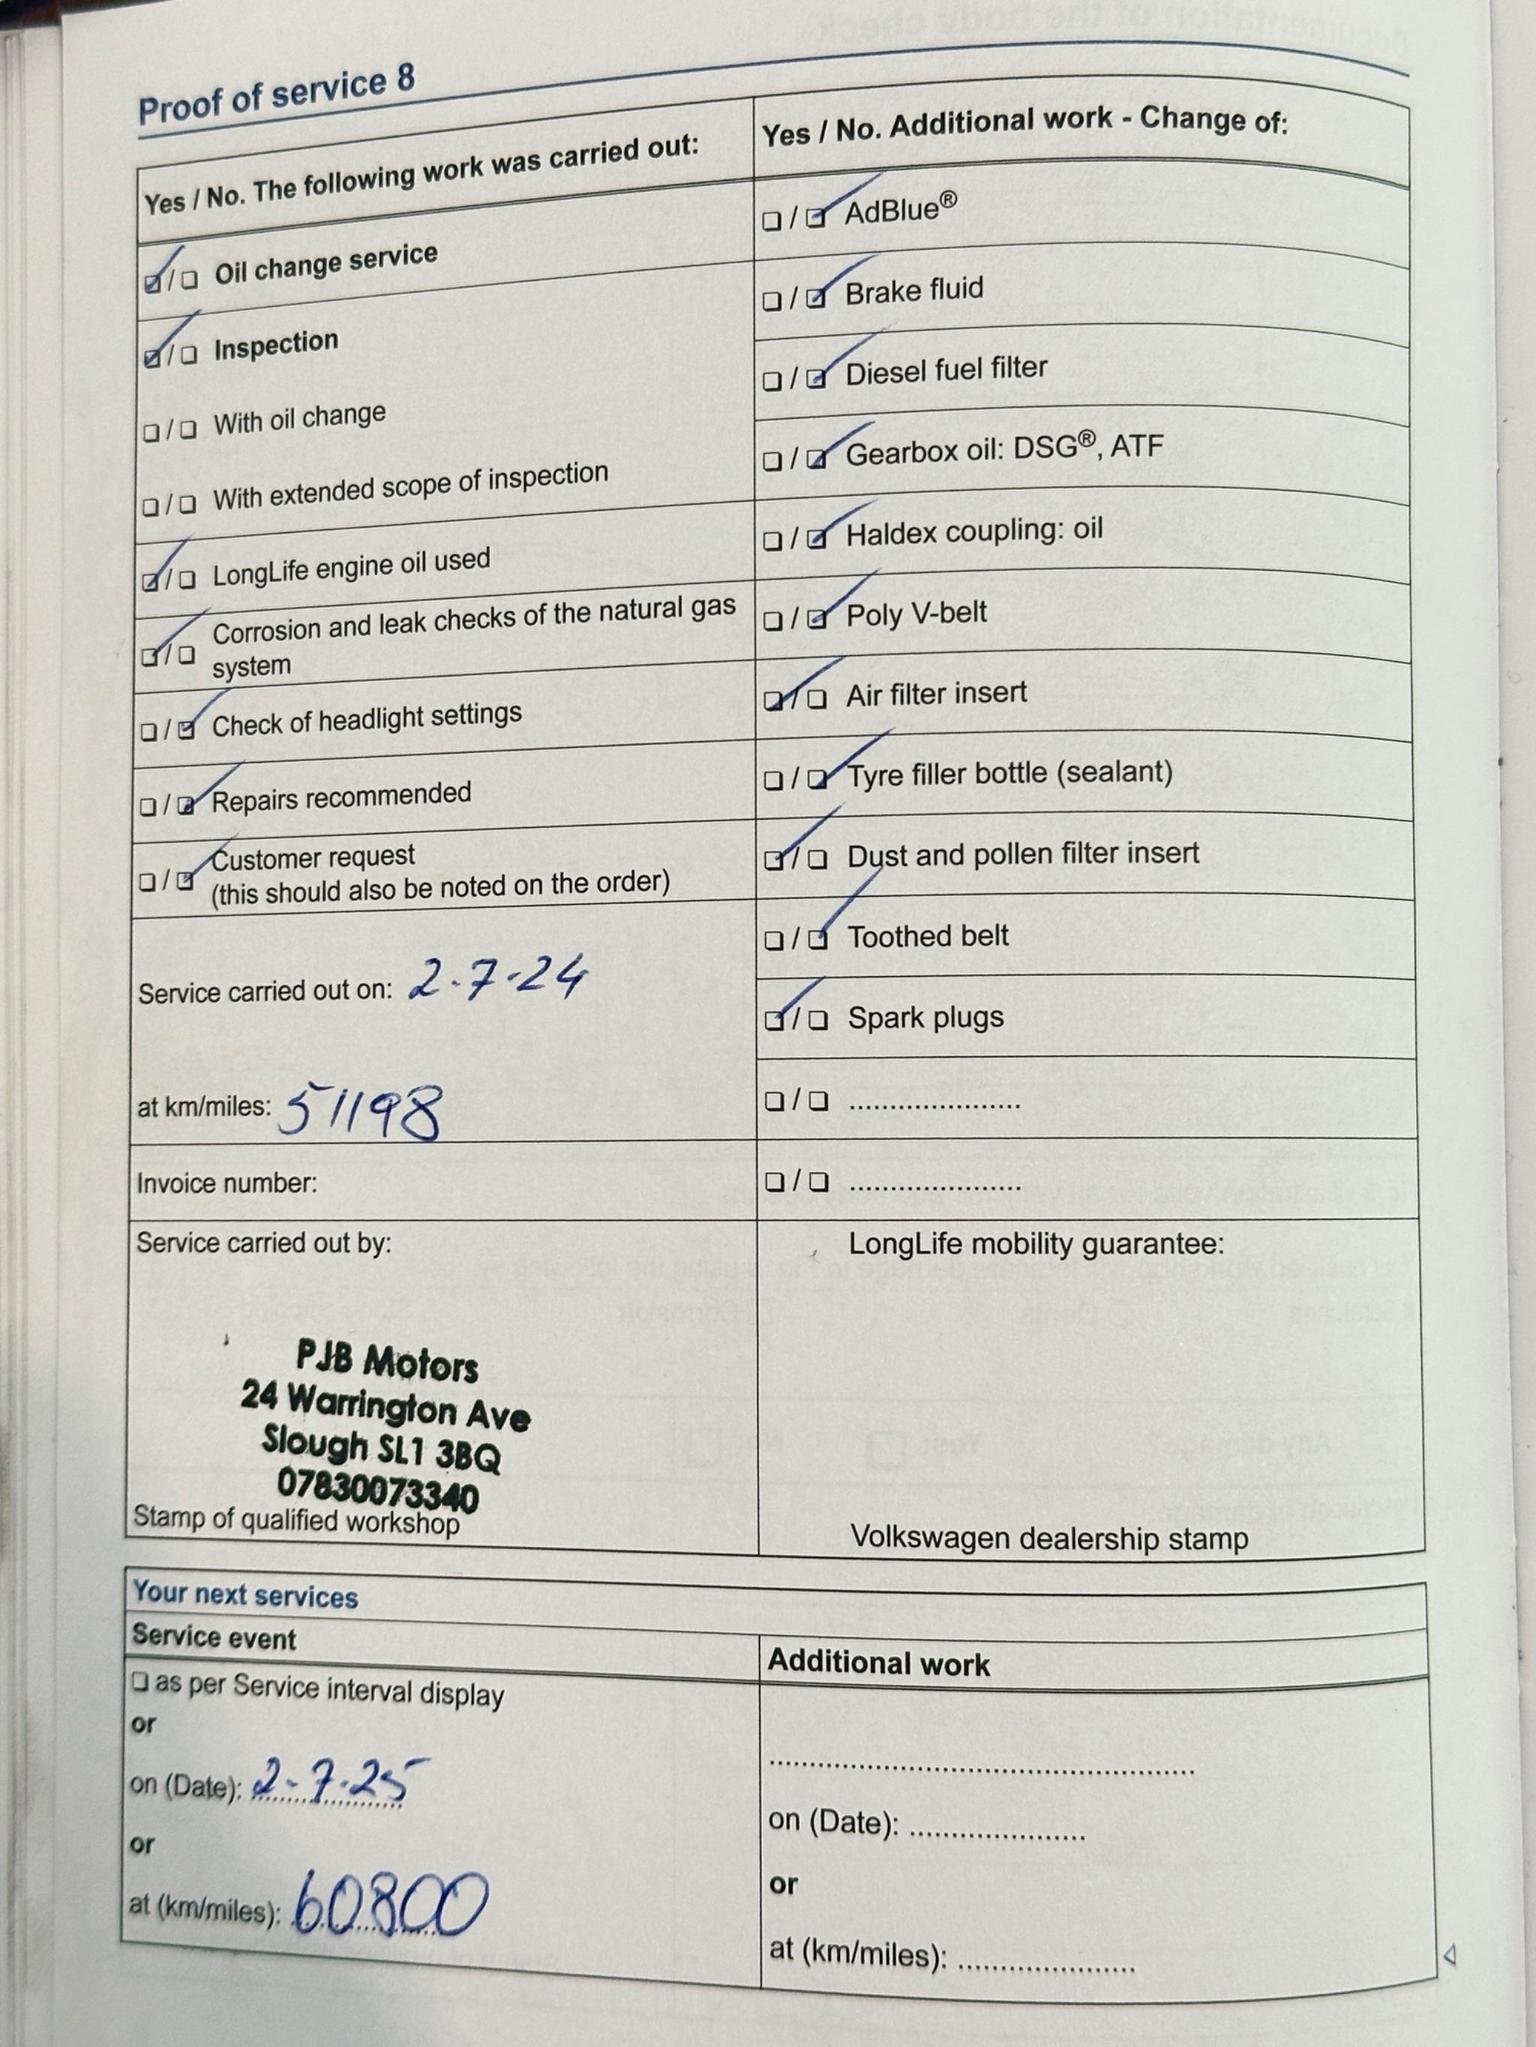 Proof of service 8
Yes / No. The following work was carried out:
Oil change service
Inspection
With oil change
With extended scope of inspection
LongLife engine oil used
Corrosion and leak checks of the natural gas
system
Check of headlight settings
Repairs recommended
Customer request
(this should also be noted on the order)
Service carried out on: 2-7-24
at km/miles: 51198
Invoice number:
Service carried out by:
PJB Motors
24 Warrington Ave
Slough SL1 3BQ
07830073340
Stamp of qualified workshop
Yes / No. Additional work - Change of:
AdBlue®
Brake fluid
Diesel fuel filter
Gearbox oil: DSG®, ATF
Haldex coupling: oil
Poly V-belt
Air filter insert
Tyre filler bottle (sealant)
Dust and pollen filter insert
Toothed belt
Spark plugs
LongLife mobility guarantee:
Volkswagen dealership stamp
Your next services
Service event
as per Service interval display
or
on (Date): 2-7-25
or
at (km/miles): 60800
Additional work
on (Date):
or
at (km/miles):